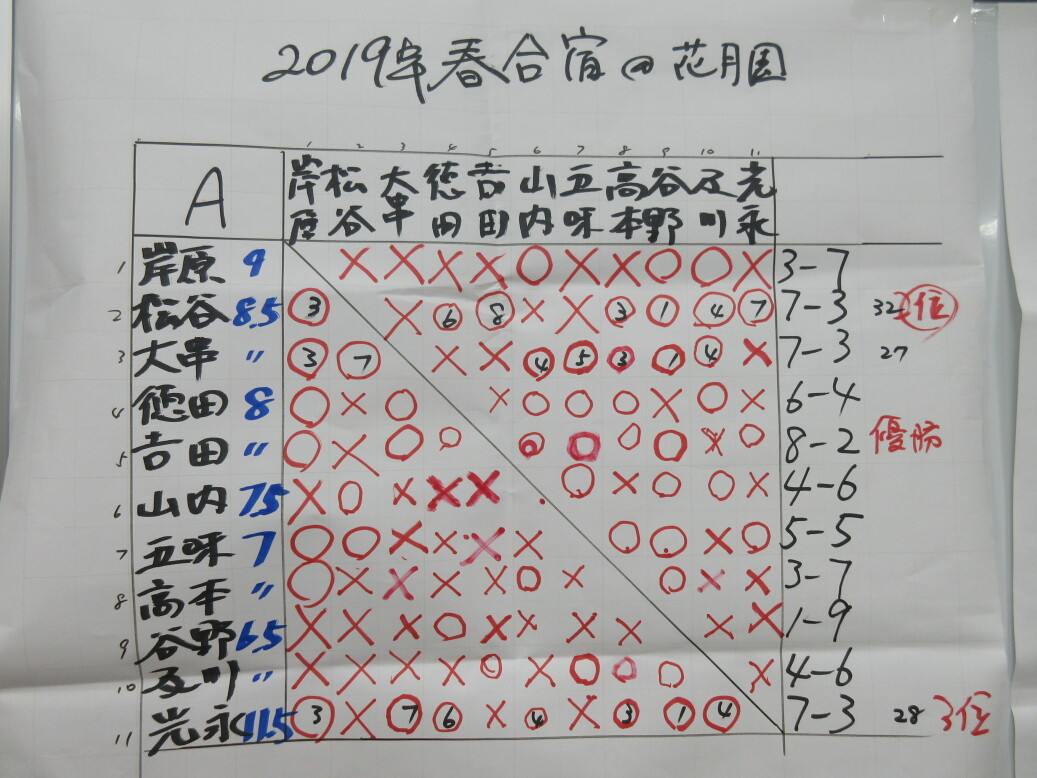 2019年春合宿@花月園
1 2 3 4 5 6 7 8 9 10 11
A 岸原 松谷 大串 徳田 吉田 山内 五味 高本 谷野 及川 光永
1 岸原 9 × × × × ○ × × ○ ○ × 3-7
2 松谷 8.5 ③ × ⑥ ⑧ × × ③ ① ④ ⑦ 7-3 32 2位
3 大串 〃 ③ ⑦ × × ④ ⑤ ③ ① ④ × 7-3 27
4 徳田 8 ○ × ○ × ○ ○ ○ × ○ × 6-4
5 吉田 〃 ○ × ○ ○ ○ ○ ○ ○ × ○ 8-2 優勝
6 山内 7.5 × ○ × × × ○ × ○ ○ × 4-6
7 五味 7 ○ ○ × × × × ○ ○ × ○ 5-5
8 高本 〃 ○ × × × × ○ × ○ × × 3-7
9 谷野 6.5 × × × ○ × × × × × × 1-9
10 及川 〃 × × × × ○ × ○ ○ ○ × 4-6
11 光永 11.5 ③ × ⑦ ⑥ × ④ × ③ ① ④ 7-3 28 3位